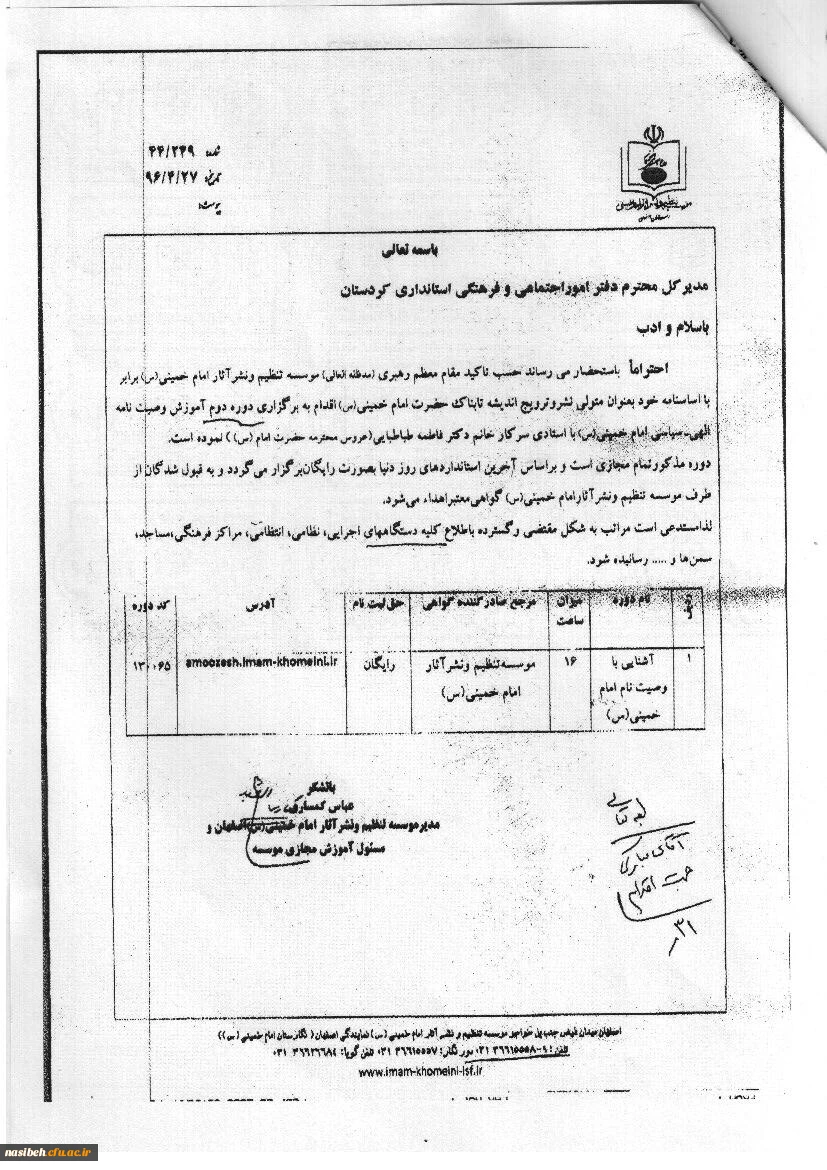 شماره ۴۴/۲۴۹
تاریخ ۹۶/۴/۲۷
پیوست
باسمه تعالی
مدیر کل محترم دفتر اموراجتماعی و فرهنگی استانداری کردستان
باسلام و ادب
احتراماً باستحضار می رساند حسب تاکید مقام معظم رهبری (مدظله العالی) موسسه تنظیم ونشرآثار امام خمینی(س) برابر
با اساسنامه خود بعنوان متولی نشروترویج اندیشه تابناک حضرت امام خمینی(س) اقدام به برگزاری دوره دوم آموزش وصیت نامه
الهی-سیاسی امام خمینی(س) با استادی سرکار خانم دکتر فاطمه طباطبایی(عروس محترمه حضرت امام (س) ) نموده است.
دوره مذکورتمام مجازی است و براساس آخرین استانداردهای روز دنیا بصورت رایگان‌برگزار می‌گردد و به قبول شدگان از
طرف موسسه تنظیم ونشرآثارامام خمینی(س) گواهی معتبراهداء می‌شود.
لذامستدعی است مراتب به شکل مقتضی رگسترده باطلاع کلیه دستگاههای اجرایی، نظامی، انتظامی، مراکز فرهنگی،مساجد،
سمن‌ها و ..... رسانیده شود.
ردیف نام دوره میزان ساعت مرجع صادرکننده گواهی حق ثبت نام آدرس کد دوره
۱ آشنایی با وصیت نام امام خمینی(س) ۱۶ موسسه تنظیم ونشرآثار امام خمینی(س) رایگان amoozesh.imam-khomeini.ir ۱۳۰۰۶۵
باتشکر
عباس کمساری
مدیرموسسه تنظیم ونشرآثار امام خمینی(س)اصفهان و
مسئول آموزش مجازی موسسه
آقای
جهت اقدام
۳۱
اصفهان میدان فیض جنب پل خواجو موسسه تنظیم و نشر آثار امام خمینی (س) نمایندگی اصفهان ( نگارستان امام خمینی (س))
تلفن: ۹-۳۶۶۱۵۵۵۸ ۰۳۱ دورنگار: ۳۶۶۱۵۵۵۷ ۰۳۱ تلفن گویا: ۳۶۶۲۶۶۸۴ ۰۳۱
www.imam-khomeini-isf.ir
nasibeh.cfu.ac.ir